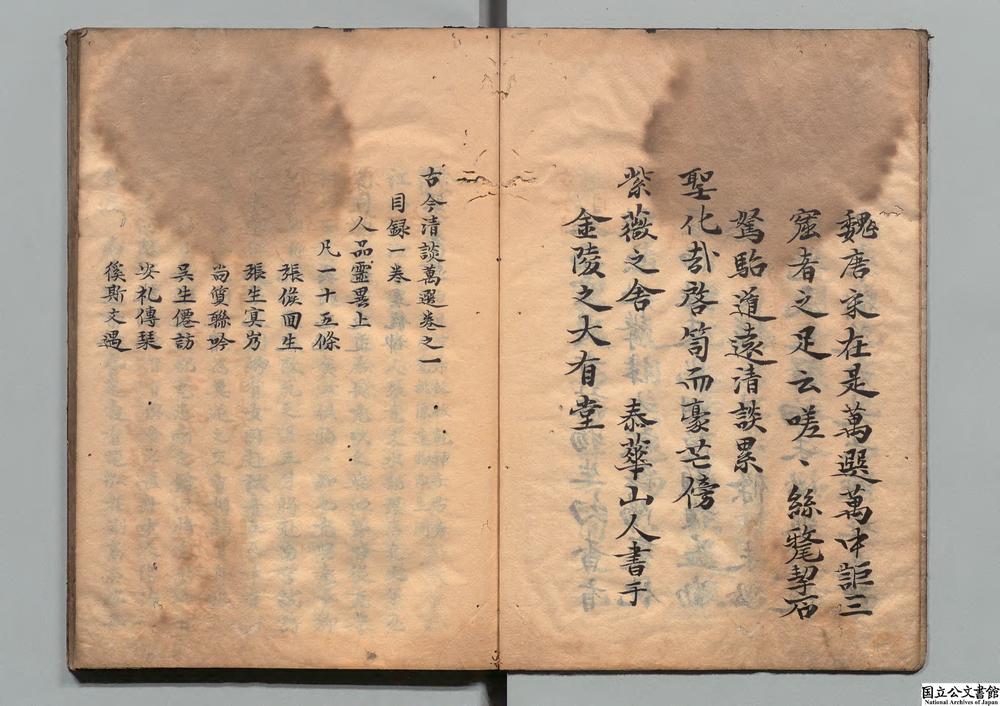 魏唐宋在是萬選萬中詎三
窟者之足云嗟〻絲鼈挈石
駑駘道遠清談累
聖化哉啓笥而豪芒傍
紫薇之舍 泰華山人書于
金陵之大有堂
古今清談萬選卷之一
目録一卷
人品靈異上
凡一十五條
張俟回生
張生冥㝌
尚質聯吟
吳生僊訪
安礼傳琹
徯斯文遇
国立公文書館
National Archives of Japan